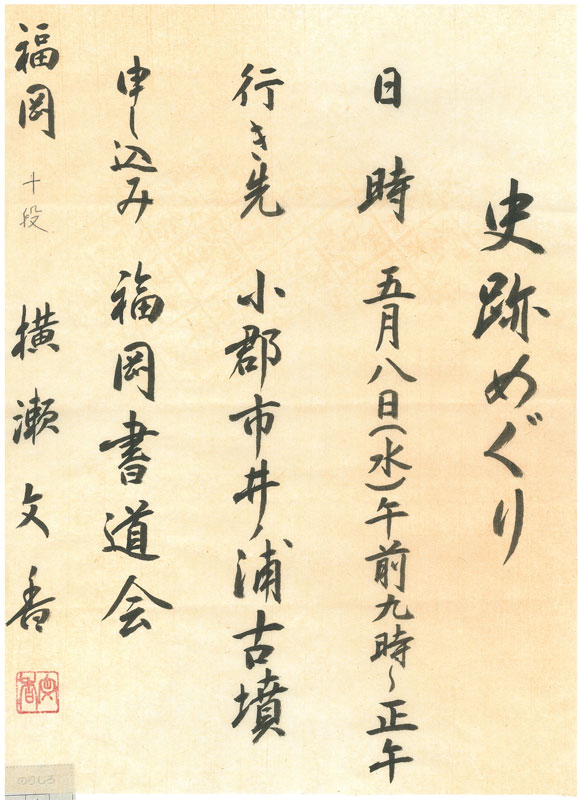 史跡めぐり
日時 五月八日(水)午前九時~正午
行き先 小郡市井ノ浦古墳
申し込み 福岡書道会
福岡 十段 横瀬文香
文香
のりしろ